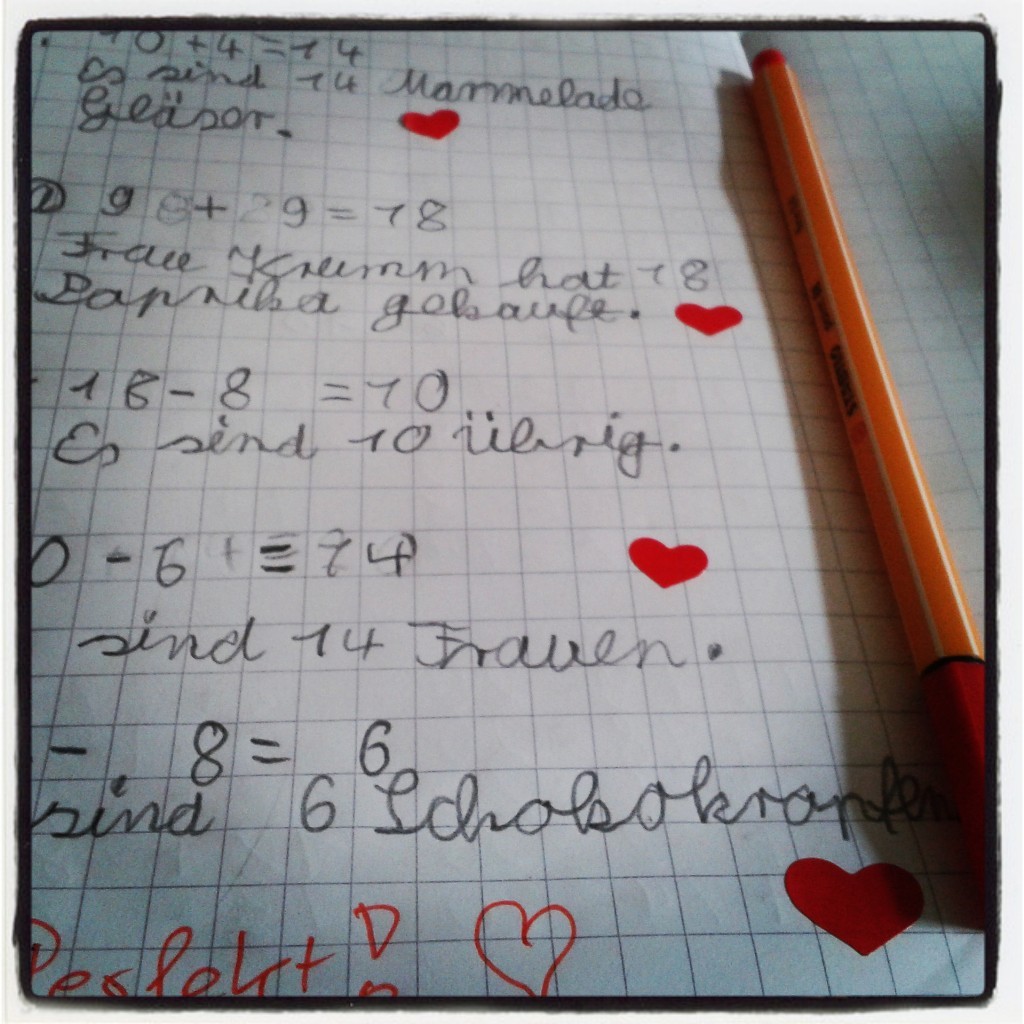 10 + 4 = 14
Es sind 14 Marmelade
Gläser.
2) 9 + 9 = 18
Frau Krumm hat 18
Paprika gekauft.
18 - 8 = 10
Es sind 10 übrig.
0 - 6 = 14
sind 14 Frauen.
- 8 = 6
sind 6 Schokokrapfen
Perfekt!
STABILO point 88